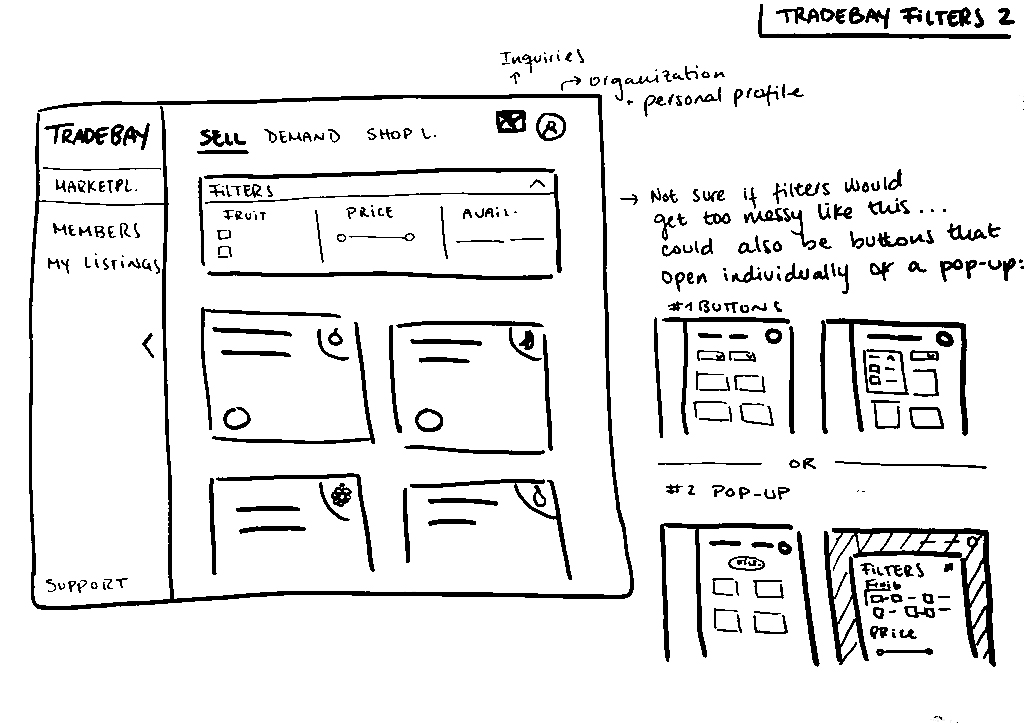 TRADEBAY FILTERS 2
Inquiries
organization
+ personal profile
TRADEBAY
MARKETPL.
MEMBERS
MY LISTINGS
SUPPORT
SELL DEMAND SHOP L.
FILTERS
FRUIT PRICE AVAIL.
→ Not sure if filters would
get too messy like this...
could also be buttons that
open individually or a pop-up:
#1 BUTTONS
OR
#2 POP-UP
FILTERS
Fruit
PRICE